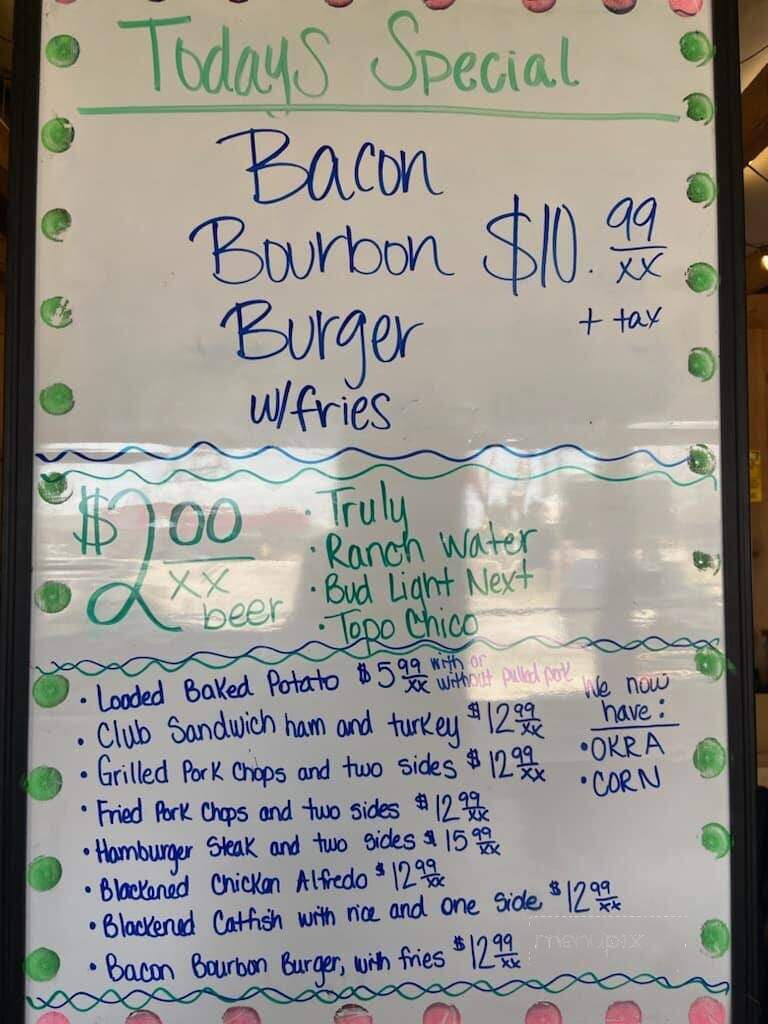 Todays Special
Bacon
Bourbon $10.99/xx
Burger + tax
w/fries
$2.00/xx beer
• Truly
• Ranch Water
• Bud Light Next
• Topo Chico
• Loaded Baked Potato $5.99/xx with or without pulled pork
• Club Sandwich ham and turkey $12.99/xx
• Grilled Pork Chops and two sides $12.99/xx
• Fried Pork Chops and two sides $12.99/xx
• Hamburger Steak and two sides $15.99/xx
• Blackened Chicken Alfredo $12.99/xx
• Blackened Catfish with rice and one side $12.99/xx
• Bacon Bourbon Burger, with fries $12.99/xx
We now
have:
• OKRA
• CORN
menupix